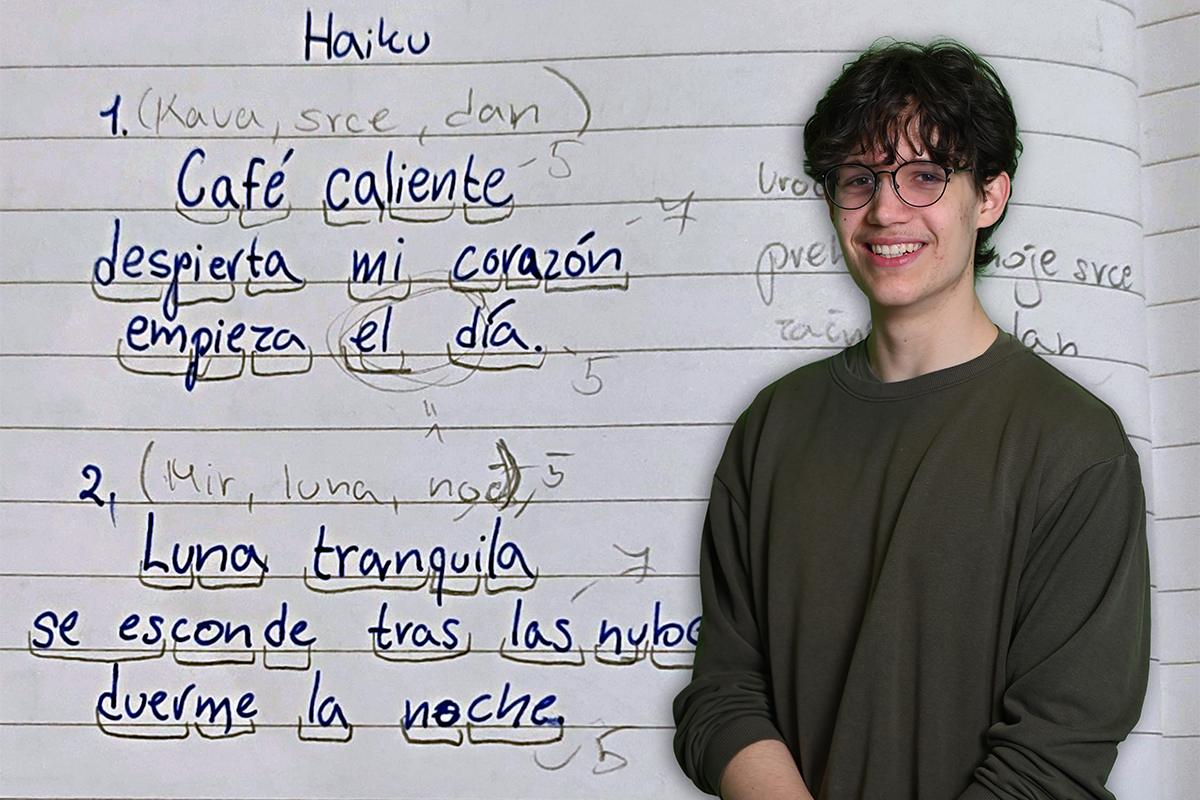 Haiku
1. (Kava, srce, dan)
Café caliente - 5
despierta mi corazón - 7
empieza el día. 5
2, (Mir, luna, noč), 5
Luna tranquila
7
se esconde tras las
duerme la noche.
5
srce